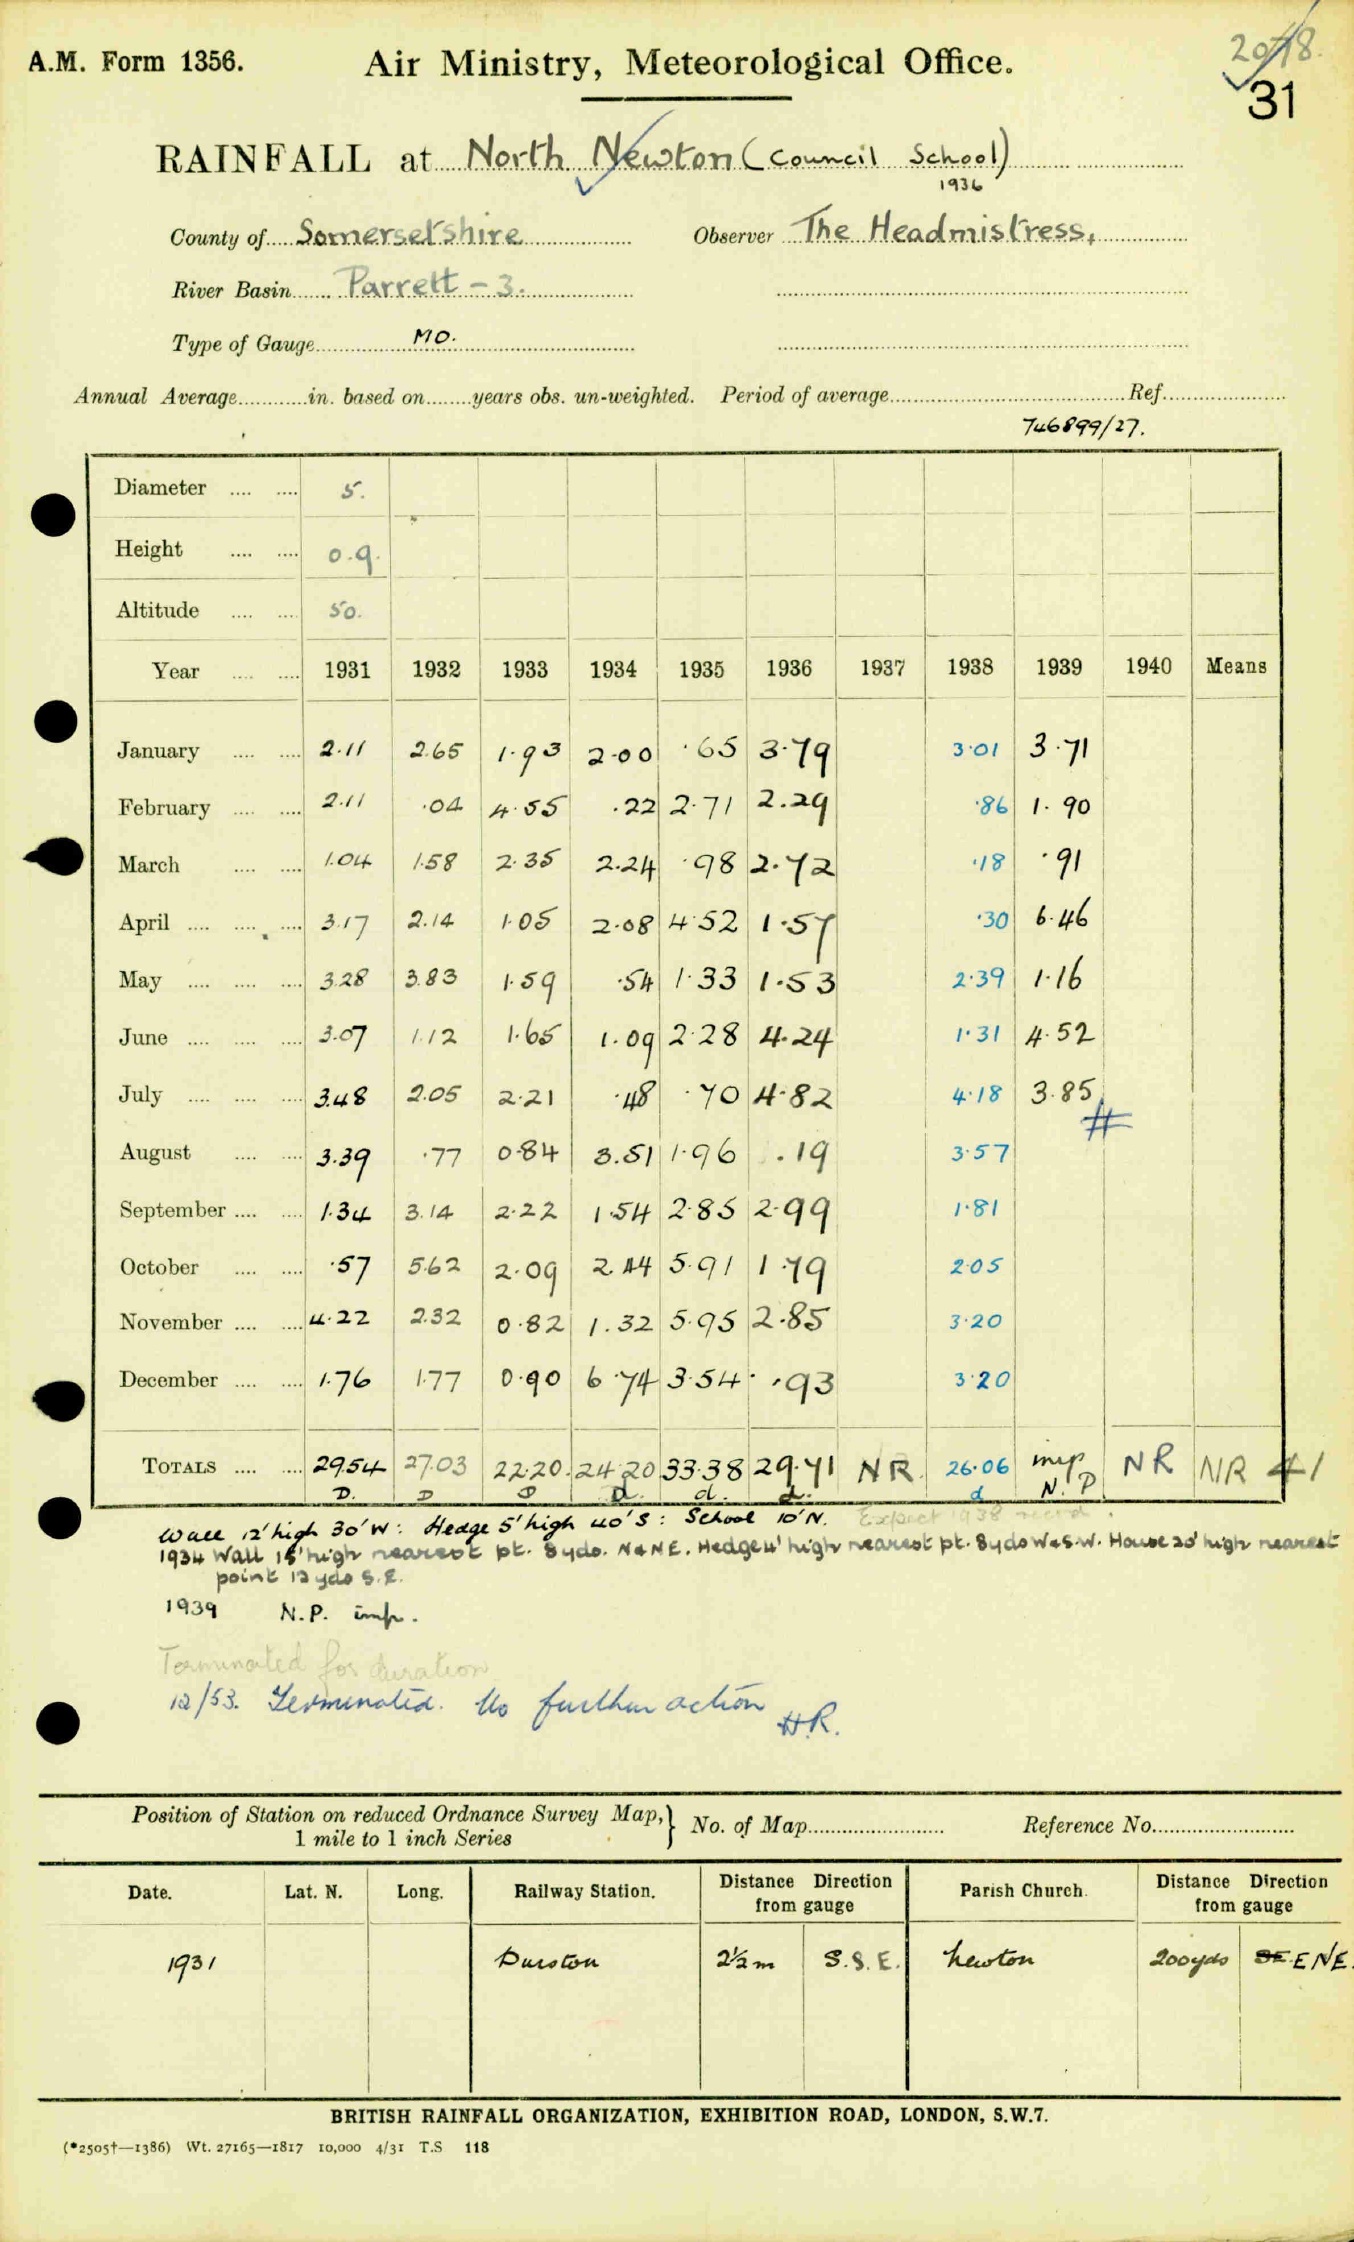 A.M. Form 1356.
Air Ministry, Meteorological Office.
31
RAINFALL at North Newton (Council School)
1936
County of Somersetshire Observer The Headmistress.
River Basin Parrett - 3.
Type of Gauge MO.
Annual Average in. based on years obs. un-weighted. Period of average Ref.
746899/27.
Diameter 5.
Height 0.9.
Altitude 50.
Year 1931 1932 1933 1934 1935 1936 1937 1938 1939 1940 Means
January 2.11 2.65 1.93 2.00 .65 3.79 3.01 3.71
February 2.11 .04 4.55 .22 2.71 2.29 .86 1.90
March 1.04 1.58 2.35 2.24 .98 2.72 .18 .91
April 3.17 2.14 1.05 2.08 4.52 1.57 .30 6.46
May 3.28 3.83 1.59 .54 1.33 1.53 2.39 1.16
June 3.07 1.12 1.65 1.09 2.28 4.24 1.31 4.52
July 3.48 2.05 2.21 .48 .70 4.82 4.18 3.85
#
August 3.39 .77 0.84 3.51 1.96 .19 3.57
September 1.34 3.14 2.22 1.54 2.85 2.99 1.81
October .57 5.62 2.09 2.44 5.91 1.79 2.05
November 4.22 2.32 0.82 1.32 5.95 2.85 3.20
December 1.76 1.77 0.90 6.74 3.54 .93 3.20
TOTALS 29.54 27.03 22.20 24.20 33.38 29.71 NR 26.06 imp NR NR 41
D. D D d. d. d. d N.P
Wall 12' high 30' W: Hedge 5' high 40' S: School 10' N. Expect 1938 record.
1934 Wall 15' high nearest pt. 8 yds. N & NE. Hedge 4' high nearest pt. 8 yds W & S.W. House 20' high nearest
point 12 yds S.E.
1939 N.P. imp.
Terminated for duration
12/53. Terminated. No further action H.R.
Position of Station on reduced Ordnance Survey Map, No. of Map Reference No.
1 mile to 1 inch Series
Date. Lat. N. Long. Railway Station. Distance Direction from gauge Parish Church. Distance Direction from gauge
1931 Durston 2½m S.S.E. Newton 200yds SE ENE.
BRITISH RAINFALL ORGANIZATION, EXHIBITION ROAD, LONDON, S.W.7.
(*2505†—1386) Wt. 27165—1817 10,000 4/31 T.S 118